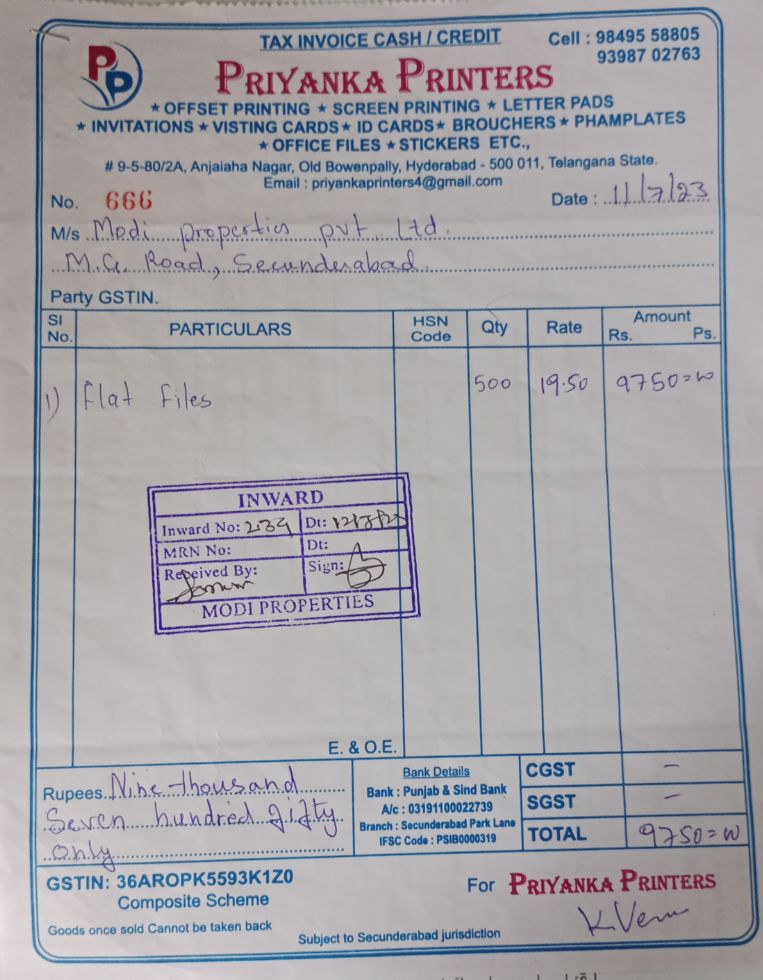 TAX INVOICE CASH / CREDIT
Cell : 98495 58805
93987 02763
PP
PRIYANKA PRINTERS
★ OFFSET PRINTING ★ SCREEN PRINTING ★ LETTER PADS
★ INVITATIONS ★ VISTING CARDS ★ ID CARDS ★ BROUCHERS ★ PHAMPLATES
★ OFFICE FILES ★ STICKERS ETC.,
# 9-5-80/2A, Anjaiaha Nagar, Old Bowenpally, Hyderabad - 500 011, Telangana State.
Email : priyankaprinters4@gmail.com
No. 666
Date : 11/7/23
M/s Modi properties pvt. Ltd.
M.G. Road, Secunderabad.
Party GSTIN.
Sl No. PARTICULARS HSN Code Qty Rate Amount Rs. Ps.
1) Flat Files 500 19.50 9750=00
INWARD
Inward No: 239 Dt: 12/7/23
MRN No: Dt:
Received By: Sign:
MODI PROPERTIES
E. & O.E.
Rupees Nine thousand
Seven hundred fifty
only
Bank Details
Bank : Punjab & Sind Bank
A/c : 03191100022739
Branch : Secunderabad Park Lane
IFSC Code : PSIB0000319
CGST –
SGST –
TOTAL 9750=00
GSTIN: 36AROPK5593K1Z0
Composite Scheme
For PRIYANKA PRINTERS
Goods once sold Cannot be taken back
Subject to Secunderabad jurisdiction